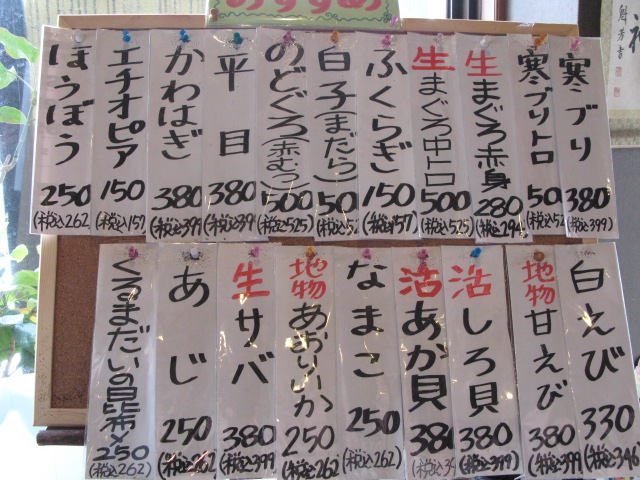 おすすめ
寒ブリ 380 (税込399)
寒ブリトロ 50 (税込52
生まぐろ赤身 280 (税込294
生まぐろ中トロ 500 (税込525)
ふくらぎ 150 (税込157)
白子(まだら) 50 (税込5
のどぐろ(赤むつ) 500 (税込525)
平目 380 (税込39
かわはぎ 380 (税込399
エチオピア 150 (税込157
ほうぼう 250 (税込262
白えび 330 (税込346
地物甘えび 380 (税込399
活しろ貝 380 (税込399
活あか貝 380 (税込39
なまこ 250 (税込262)
地物あおりいか 250 (税込262
生サバ 380 (税込399
あじ 250 (税込262
くるまだいの昆布〆 250 (税込262)
魁芳書